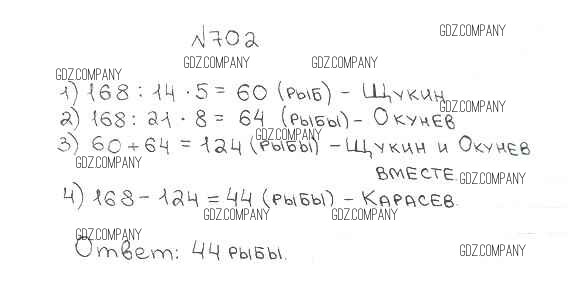 №702
GDZ.COMPANY
GDZ.COMPANY GDZ.COMPANY
GDZ.COMPANY
1) 168 : 14 · 5 = 60 (рыб) – Щукин
GDZ.COMPANY
2) 168 : 21 · 8 = 64 (рыбы) – Окунев
GDZ.COMPANY
3) 60 + 64 = 124 (рыбы) – Щукин и Окунев
GDZ.COMPANY
вместе.
GDZ.COMPANY
4) 168 – 124 = 44 (рыбы) – Карасев.
GDZ.COMPANY GDZ.COMPANY
GDZ.COMPANY
Ответ: 44 рыбы.
GDZ.COMPANY